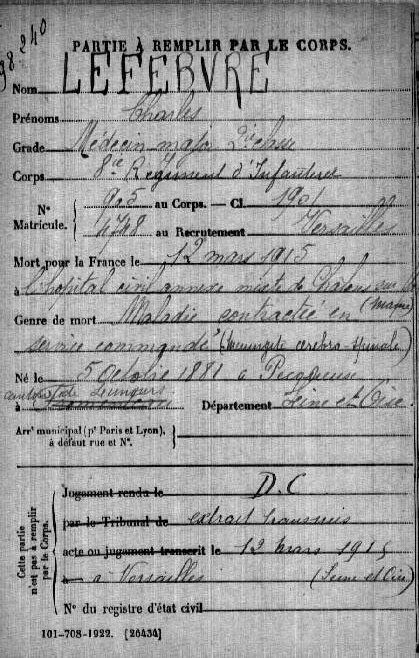 98240
PARTIE À REMPLIR PAR LE CORPS.
Nom LEFEBVRE
Prénoms Charles
Grade Médecin major 2e classe
Corps 8ie Régiment d'Infanterie
N° Matricule. { 905 au Corps. — Cl. 1901
4748 au Recrutement Versailles
Mort pour la France le 12 mars 1915
à l'hôpital civil annexe mixte de Châlons sur
(Marne)
Genre de mort Maladie contractée en
service commandé (Meningite cérébro-spinale)
Né le 5 Octobre 1881 à Pecqueuse
canton de Limours
à Département Seine et Oise
Arr' municipal (p' Paris et Lyon),
à défaut rue et N°.
Cette partie n'est pas à remplir par le Corps.
Jugement rendu le D.C
par le Tribunal de extrait transmis
acte ou jugement transcrit le 12 mars 1915
à Versailles (Seine et Oise)
N° du registre d'état civil
101-708-1922. [26434]